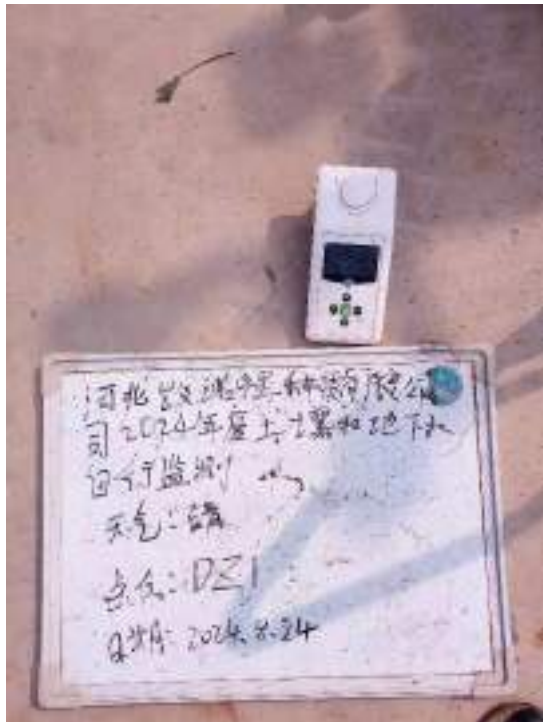 河北
司2024年度土壤和地下水
自行监测
天气：晴
点位：DZ1
日期：2024.8.24